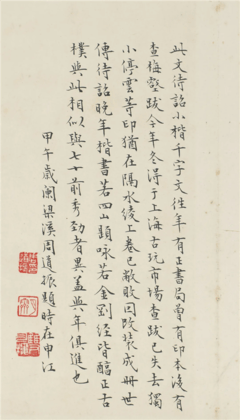 此文待詔小楷千字文往年有正書局曾有印本後有
查梅壑跋今年冬得于上海古玩市場查跋已失去獨
小停雲等印猶在隔水後上卷已敝敗因改裝成冊世
傳待詔晚年楷書若四山題咏若金剛經皆醇正古
樸與此相似與七十前秀勁者異蓋與年俱進也
甲午歲闌梁溪周道振題時在申江